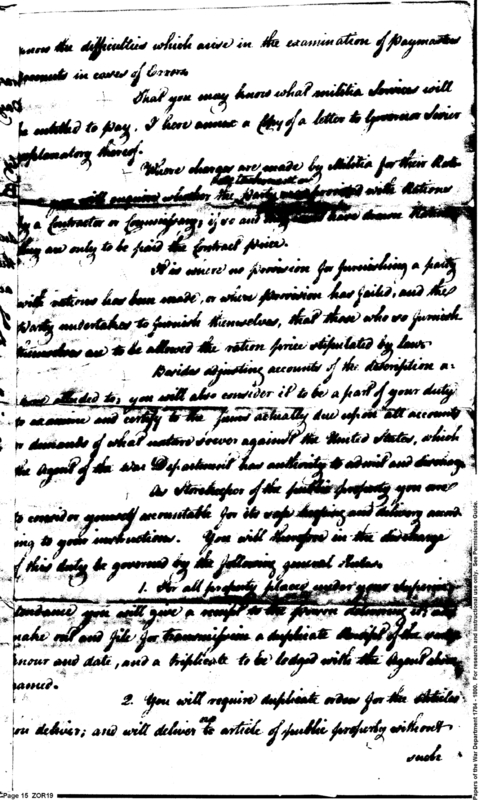 know the difficulties which arise in the examination of paymasters
accounts in cases of Errors.
That you may know what militia Services will
be entitled to pay. I here annex a Copy of a letter to Governor Sevier
explanatory thereof.
Where charges are made by Militia for their Rati-
you will enquire whether the party with Rations
by a Contractor or Commissary; if so and have drawn Rations
they are only to be paid the Contract price.
It is where no provision for furnishing a party
with rations has been made, or where provision has failed, and the
party undertakes to furnish themselves, that those who so furnish
themselves are to be allowed the ration price stipulated by law.
Besides adjusting accounts of the description a-
bove alluded to; you will also consider it to be a part of your duty
to examine and certify to the sums actually due upon all accounts
or demands of what nature soever against the United States, which
the Agent of the War Department has authority to admit and
As Storekeeper of the public property you are
to consider yourself accountable for its safe keeping and delivery accord
ing to your instructions. You will therefore in the discharge
of this duty be governed by the following general Rules.
1. For all property placed under your superin-
tendance you will give a receipt to the person delivering it; and
make out and file for transmission a duplicate Receipt of the same
tenour and date, and a triplicate to be lodged with the Agent above
named.
2. You will require duplicate orders for the Articles
you deliver; and will deliver no article of public property without
such
Page 15 ZOR19
Papers of the War Department 1784 - 1800. For research and instructional use only. See Permissions Guide.